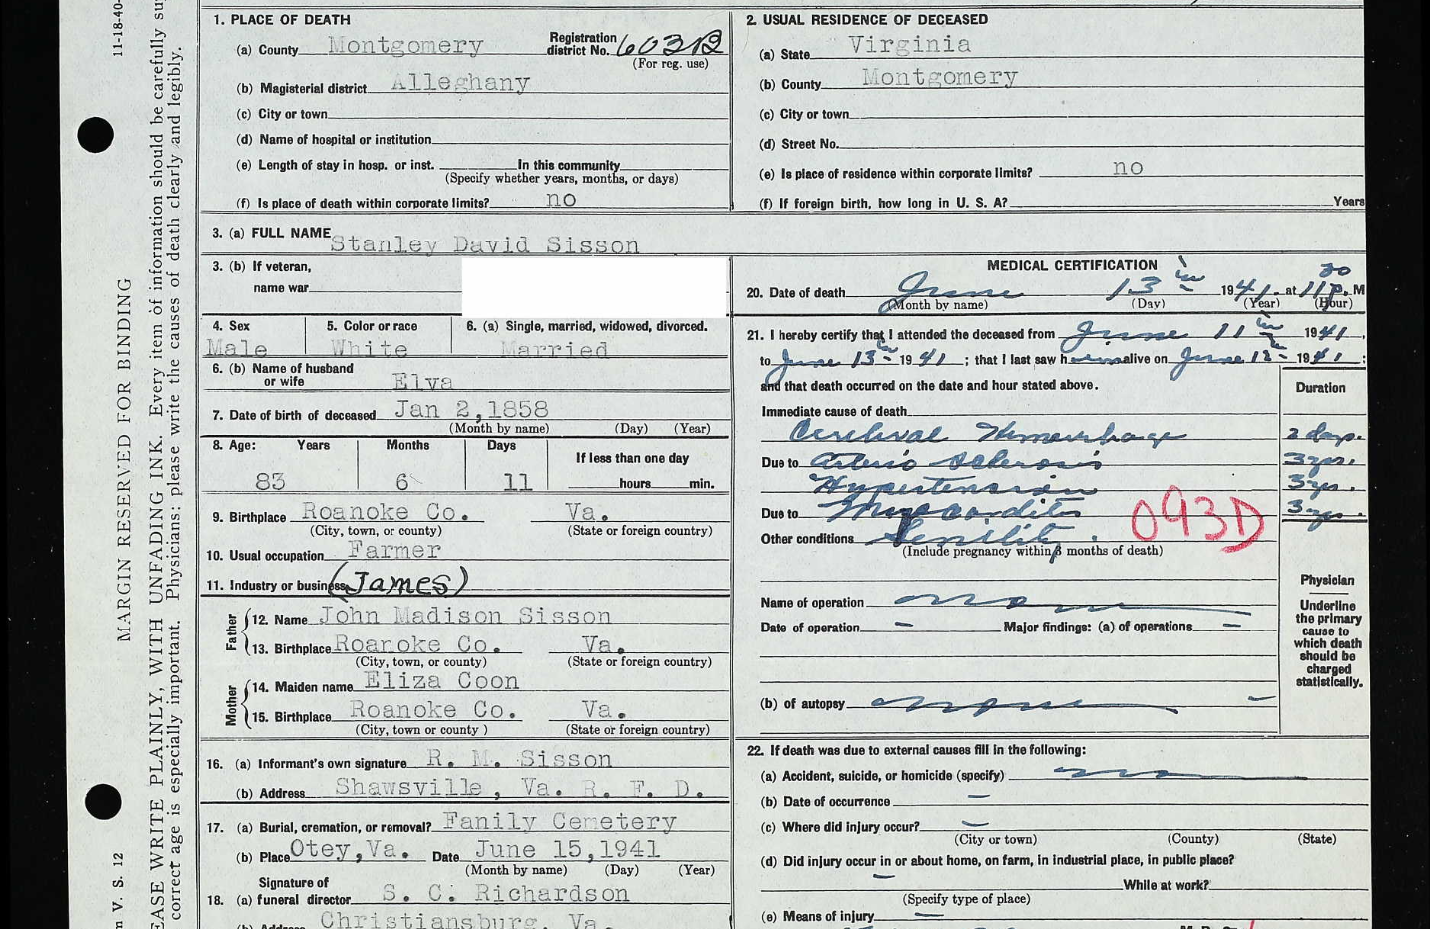 11-18-40-
MARGIN RESERVED FOR BINDING
EASE WRITE PLAINLY, WITH UNFADING INK. Every item of information should be carefully su
correct age is especially important. Physicians: please write the causes of death clearly and legibly.
m V. S. 12
1. PLACE OF DEATH
(a) County Montgomery Registration district No. 6031B
(For reg. use)
(b) Magisterial district Alleghany
(c) City or town
(d) Name of hospital or institution
(e) Length of stay in hosp. or inst. In this community
(Specify whether years, months, or days)
(f) Is place of death within corporate limits? no
2. USUAL RESIDENCE OF DECEASED
(a) State Virginia
(b) County Montgomery
(c) City or town
(d) Street No.
(e) Is place of residence within corporate limits? no
(f) If foreign birth, how long in U. S. A? Years
3. (a) FULL NAME Stanley David Sisson
3. (b) If veteran,
name war
4. Sex 5. Color or race 6. (a) Single, married, widowed, divorced.
Male White Married
6. (b) Name of husband
or wife Elva
7. Date of birth of deceased Jan 2,1858
(Month by name) (Day) (Year)
8. Age: Years Months Days If less than one day
83 6 11 hours min.
9. Birthplace Roanoke Co. Va.
(City, town, or county) (State or foreign country)
10. Usual occupation Farmer
11. Industry or business (James)
Father
12. Name John Madison Sisson
13. Birthplace Roanoke Co. Va.
(City, town, or county) (State or foreign country)
Mother
14. Maiden name Eliza Coon
15. Birthplace Roanoke Co. Va.
(City, town or county ) (State or foreign country)
16. (a) Informant's own signature R. M. Sisson
(b) Address Shawsville, Va. R. F. D.
17. (a) Burial, cremation, or removal? Fanily Cemetery
(b) Place Otey,Va. Date June 15,1941
(Month by name) (Day) (Year)
Signature of
18. (a) funeral director S. C. Richardson
(b) Address Christiansburg, Va.
MEDICAL CERTIFICATION
20. Date of death June 13th 1941. at 11 30 p. M
(Month by name) (Day) (Year) (Hour)
21. I hereby certify that I attended the deceased from June 11th 1941,
to June 13th 1941; that I last saw him alive on June 12th 1941;
and that death occurred on the date and hour stated above.
Duration
Immediate cause of death
Cerebral Hemorrhage 2 days.
Due to Arterio Sclerosis 3 yrs.
Hypertension 3 yrs.
Due to Myocarditis 3 yrs
Other conditions Senility.
(Include pregnancy within 3 months of death)
093D
Physician
Underline
the primary
cause to
which death
should be
charged
statistically.
Name of operation none
Date of operation – Major findings: (a) of operations –
(b) of autopsy none –
22. If death was due to external causes fill in the following:
(a) Accident, suicide, or homicide (specify) no
(b) Date of occurrence –
(c) Where did injury occur? –
(City or town) (County) (State)
(d) Did injury occur in or about home, on farm, in industrial place, in public place?
– While at work?
(Specify type of place)
(e) Means of injury –